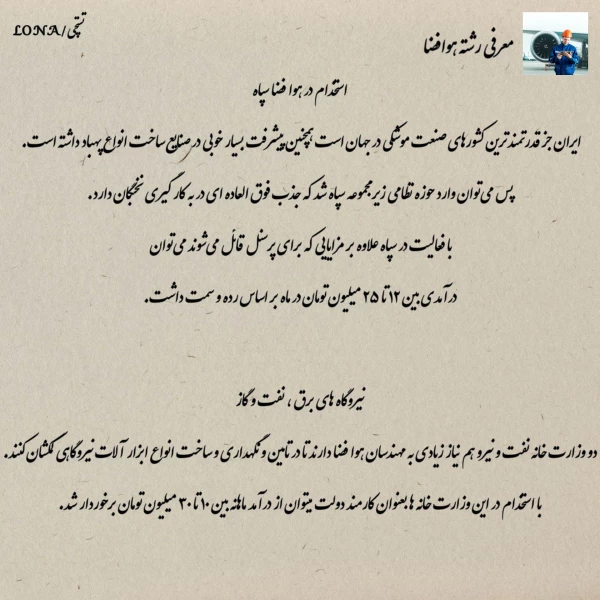 تستچی/LONA
معرفی رشته هوافضا
استخدام در هوا فضا سپاه
ایران جز قدرتمندترین کشورهای صنعت موشکی در جهان است همچنین پیشرفت بسیار خوبی در صنایع ساخت انواع پهپاد داشته است.
پس می‌توان وارد حوزه نظامی زیرمجموعه سپاه شد که جذب فوق العاده ای در به کار گیری نخبگان دارد.
با فعالیت در سپاه علاوه بر مزایایی که برای پرسنل قائل می‌شوند می‌توان
درآمدی بین ۱۲ تا ۲۵ میلیون تومان در ماه بر اساس رده و سمت داشت.
نیروگاه های برق ، نفت و گاز
دو وزارت خانه نفت و نیرو هم نیاز زیادی به مهندسان هوا فضا دارند تا در تامین و نگهداری و ساخت انواع ابزار آلات نیروگاهی کمکشان کنند.
با استخدام در این وزارت خانه ها بعنوان کارمند دولت میتوان از درآمد ماهانه بین ۱۰ تا ۳۰ میلیون تومان برخوردار شد.